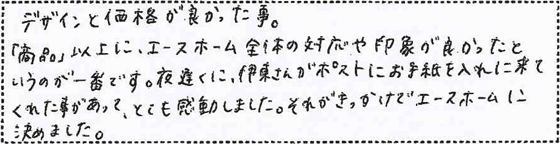 デザインと価格が良かった事。
「商品」以上に、エースホーム全体の対応や印象が良かったと
いうのが一番です。夜遅くに、伊東さんがポストにお手紙を入れに来て
くれた事があって、とても感動しました。それがきっかけでエースホームに
決めました。